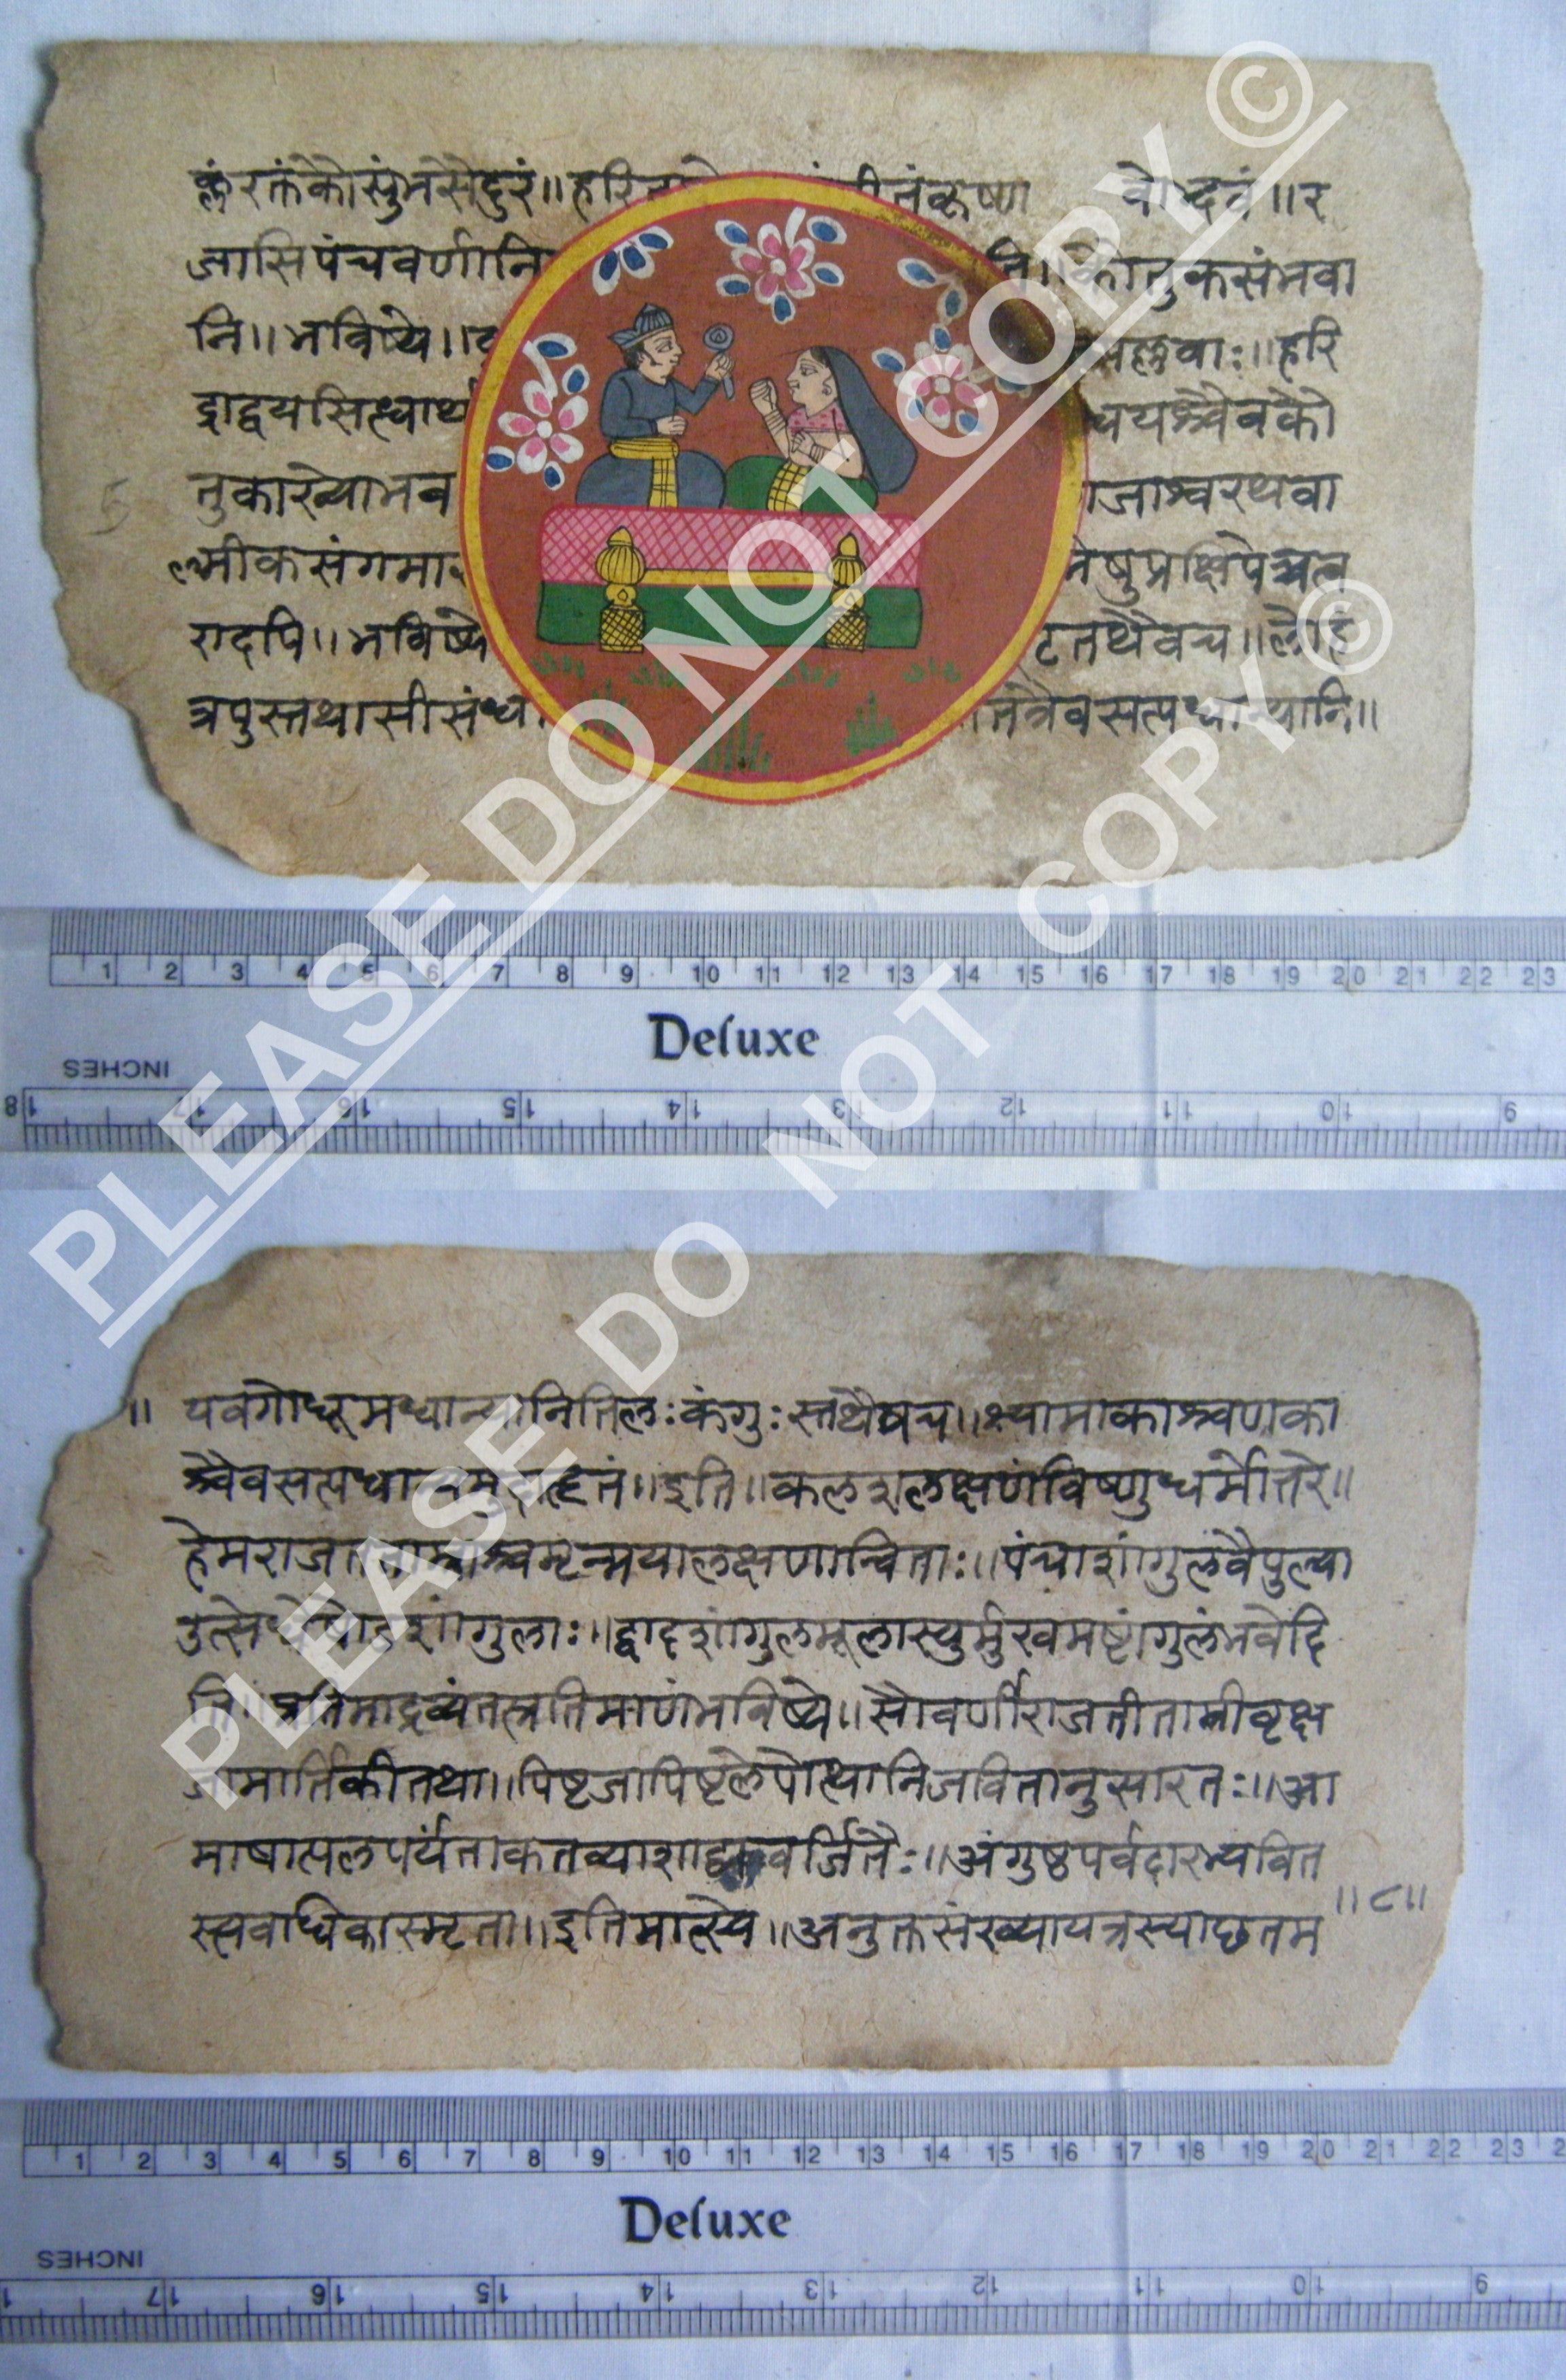 क्लं रक्तं कौसुंभसेदुरं॥ हरि
कृष्ण
॥ र
जासि पंचवर्णानि
कौतुकसंभवा
नि॥ भविष्ये॥
हरि
द्राद्वयसिध्धार्थ
चयश्चैवकौ
तुकाख्याभव
जाश्वरथवा
ल्मीकसंगमा
षुप्रक्षिपेच्चत्व
रादपि॥ भविष्ये
टतथैवच॥ लोहं
त्रपुस्तथासीसंध
तत्रैवसप्तधान्यानि॥
1 2 3 4 5 6 7 8 9 10 11 12 13 14 15 16 17 18 19 20 21 22 23
Deluxe
INCHES
18 17 16 15 14 13 12 11 10 9
॥ यवगोधूमधान्यानितिलः कंगुः स्तथैवच॥ श्यामाकाश्चणका
श्चैवसप्तधान्यमुदाहृतं॥ इति॥ कलशलक्षणंविष्णुधर्मोत्तरे॥
हेमराजतताम्राश्चमृन्मयालक्षणान्विताः॥ पंचाशांगुलवैपुल्या
उत्सेधेषोडशांगुलाः॥ द्वादशांगुलमूलास्युर्मुखमष्टांगुलंभवेदि
ति॥ प्रतिमाद्रव्यंतत्प्रतिमाणंभविष्ये॥ सौवर्णीराजतीताम्रीवृक्ष
जामार्तिकीतथा॥ पिष्टजापिष्टलेपोत्थानिजवित्तानुसारतः॥ आ
माषात्पलपर्यंताकतव्याशाठ्यवर्जितैः॥ अंगुष्ठपर्वदारभ्यवित
स्त्यवाधिकास्मृता॥ इतिमात्स्ये॥ अनुक्तसंख्यायत्रस्याछतम
॥८॥
1 2 3 4 5 6 7 8 9 10 11 12 13 14 15 16 17 18 19 20 21 22 23
Deluxe
INCHES
17 16 15 14 13 12 11 10 9
PLEASE DO NOT COPY ©
PLEASE DO NOT COPY ©